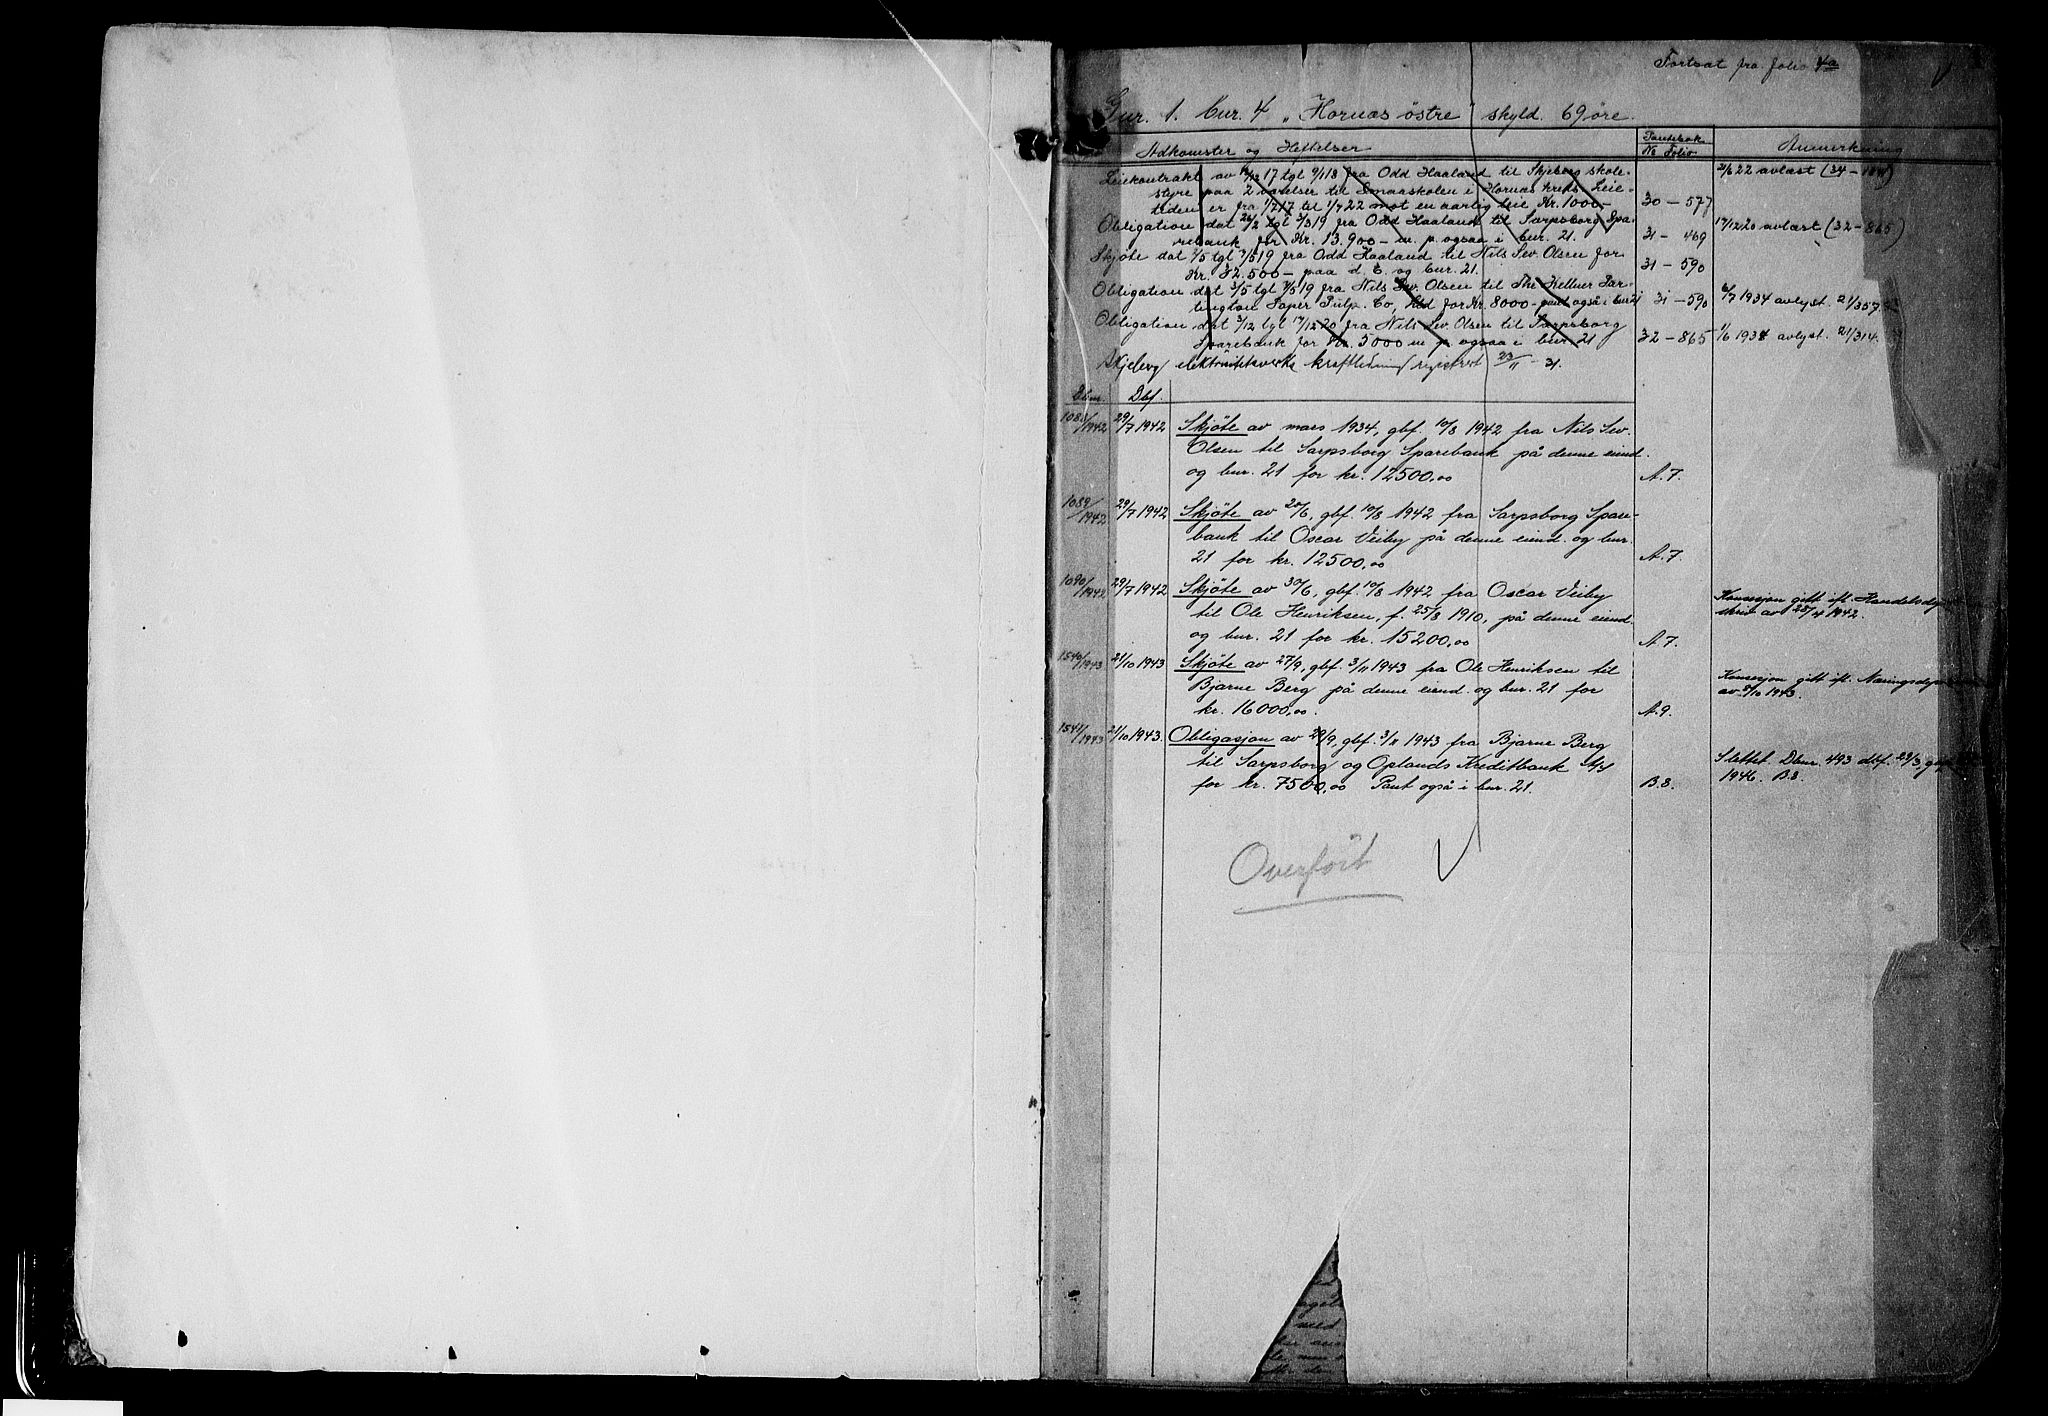 Fortsat fra folio 4a
Gnr. 1. bnr. 4 „Hornæs östre" skyld. 69 øre.
Adkomster og Heftelser
Pantebok
No Folio
Anmerkning
Leiekontrakt av 17 tgl 9/1 18 fra Odd Haaland til Skjeberg skole-
styre paa 2 værelser til Smaaskolen i Hornæs kreds. Leie-
tiden er fra 1/7 17 til 1/7 22 mot en aarlig leie Kr. 1000.-
30 - 577
22 avlæst (34 - )
Obligation dat 26/2 tgl 3/3 19 fra Odd Haaland til Sarpsborg Spa-
rebank for Kr. 13.900 - m. p. ogsaa i bnr. 21.
31 - 469
17/12 20 avlæst (32 - 865)
Skjøte dat 1/5 tgl 3/5 19 fra Odd Haaland til Nils Sev. Olsen for
Kr. 32.500 - paa d. E. og bnr. 21.
31 - 590
Obligation dat 3/5 tgl 19 fra Nils Sev. Olsen til The Kellner Par-
tington Paper Pulp. Co, Ltd for Kr. 8000 - pant også i bnr 21
31 - 590
1934 avlyst. 21/357.
Obligation dat 3/12 tgl 17/12 20 fra Nils Sev. Olsen til Sarpsborg
Sparebank for Kr. 5000 m p. ogsaa i bnr. 21
32 - 865
1/6 1934 avlyst. 21/314.
Skjeberg elektrisitetsverks kraftledning registrert 23/11 - 31.
Dbnr. Dbf.
1088/1942 29/7 1942 Skjöte av mars 1934, gbf. 10/8 1942 fra Nils Sev.
Olsen til Sarpsborg Sparebank på denne eiend.
og bnr. 21 for kr. 12500,00
A. 7.
1089/1942 29/7 1942 Skjöte av 20/6, gbf. 10/8 1942 fra Sarpsborg Spare-
bank til Oscar Veiby på denne eiend. og bnr.
21 for kr. 12500,00
A. 7.
1090/1942 29/7 1942 Skjöte av 30/6, gbf. 10/8 1942 fra Oscar Veiby
til Ole Henriksen, f. 25/8 1910, på denne eiend.
og bnr. 21 for kr. 15200,00
A. 7.
Konsesjon gitt ifl. Handelsdep
skriv av 25/4 1942.
1540/1943 21/10 1943 Skjöte av 27/9, gbf. 3/11 1943 fra Ole Henriksen til
Bjarne Berg på denne eiend. og bnr. 21 for
kr. 16000,00
A. 9.
Konsesjon gitt ifl. Næringsdep
av 1943.
1541/1943 21/10 1943. Obligasjon av 29/9, gbf. 3/11 1943 fra Bjarne Berg
til Sarpsborg og Oplands Kreditbank A/S
for kr. 7500,00 Pant også i bnr. 21.
B. 8.
Slettet Dbnr. 493 dbf. 23/3, gbf
1946. B.8.
Overfört